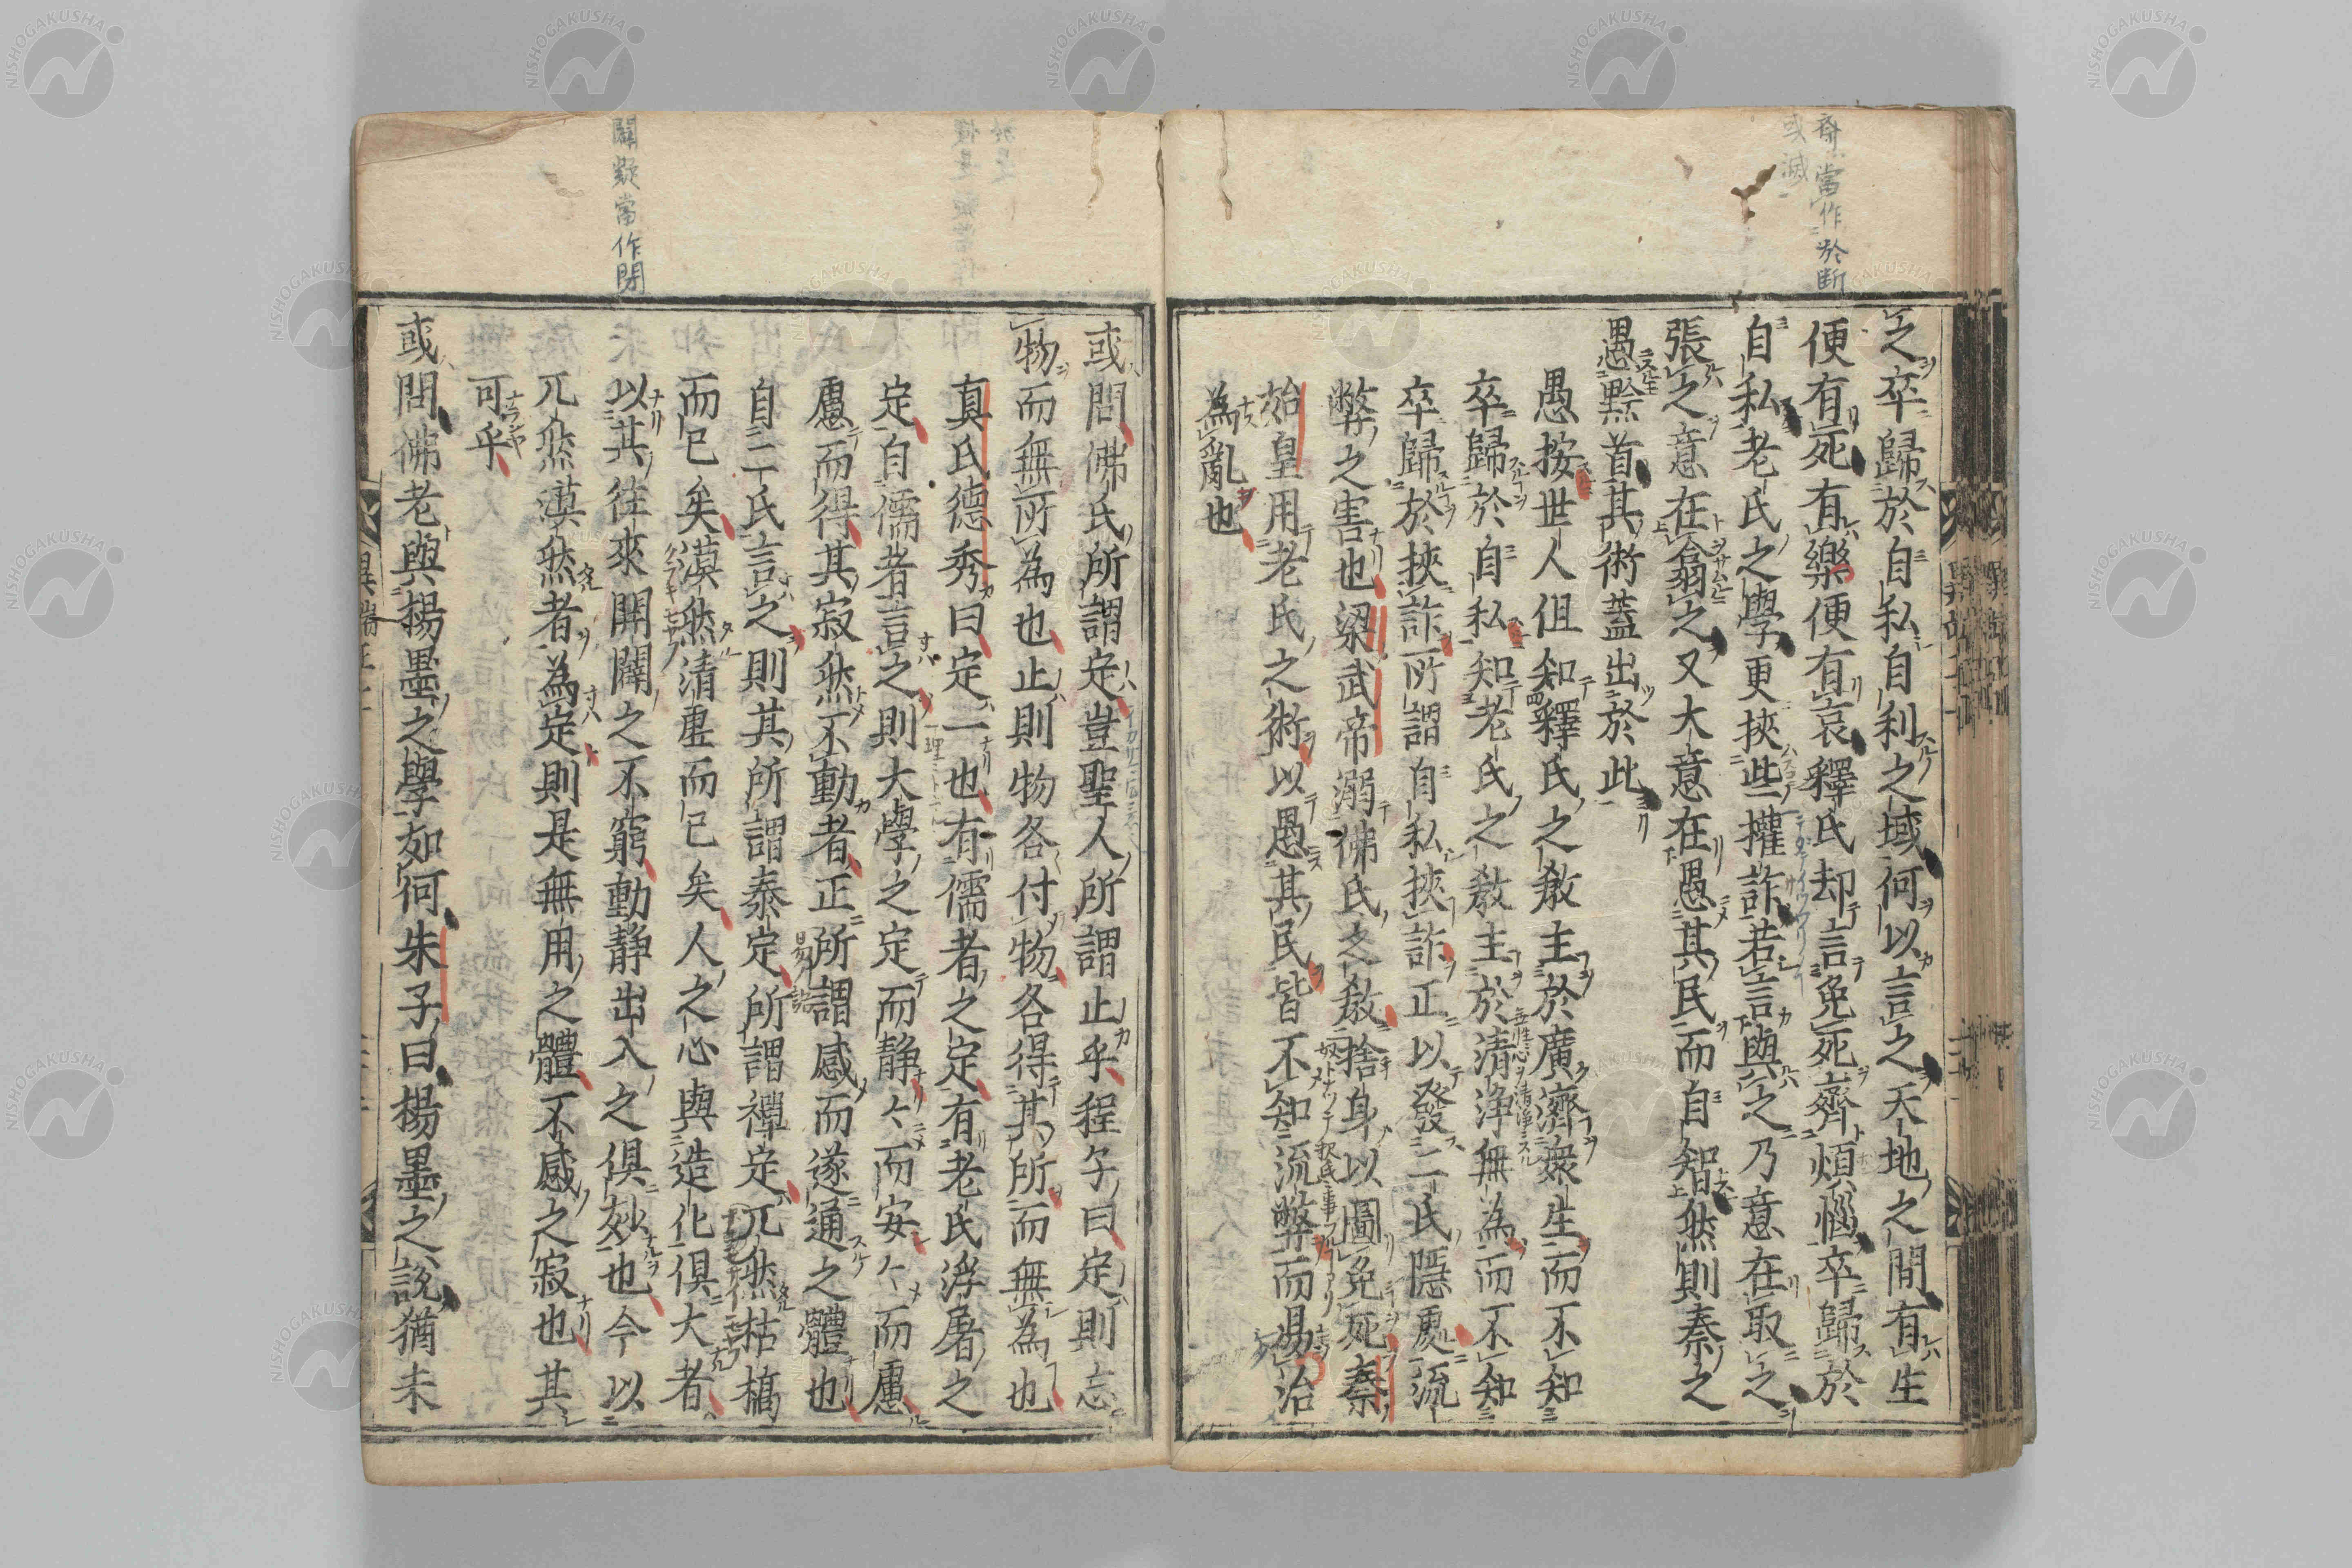 之卒歸於自私自利之域何以言之天地之間有生
便有死有樂便有哀釋氏却言免死齊煩惱卒歸於
自私老氏之學更挾些權詐若言與之乃意在取之
張之意在翕之又大意在愚其民而自智然則秦之
愚黔首其術蓋出於此
愚按世人但知釋氏之敎主於廣濟衆生而不知
卒歸於自私知老氏之敎主於清淨無為而不知
卒歸於挾詐所謂自私挾詐正以發二氏隱處流
弊之害也梁武帝溺佛氏之敎捨身以圖免死秦
始皇用老氏之術以愚其民皆不知流弊而易治
為亂也
或問佛氏所謂定豈聖人所謂止乎程子曰定則忘
物而無所為也止則物各付物各得其所而無為也
真氏德秀曰定一也有儒者之定有老氏浮屠之
定自儒者言之則大學之定而静々而安々而慮
慮而得其寂然不動者正所謂感而遂通之體也
自二氏言之則其所謂泰定所謂禪定兀然枯槁
而已矣漠然清虚而已矣人之心與造化俱大者
以其往來開闢之不窮動静出入之俱妙也今以
兀然漠然者為定則是無用之體不感之寂也其
可乎
或問佛老與揚墨之學如何朱子曰揚墨之說猶未
齊當作於断
或滅
闢疑當作閉
NISHOGAKUSHA